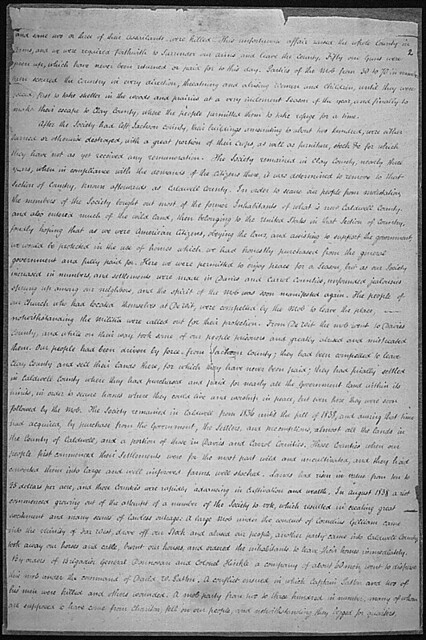 2
and some two or three of their assailants were killed. This unfortunate affair raised the whole County in
Arms, and we were required forthwith to surrender our arms and leave the County. Fifty one Guns were
given up, which have never been returned or paid for to this day. Parties of the Mob from 30 to 70 in number
then scoured the Country in every direction, threatning and abusing Women and Children, until they were
forced first to take shelter in the woods and prairies at a very inclement Season of the year, and finally to
make their escape to Clay County, where the people permitted them to take refuge for a time.
After the Society had left Jackson County, their buildings amounting to about two hundred, were either
burned or otherwise destroyed, with a great portion of their Crops, as well as furniture, stock &c for which
they have not as yet received any remuneration. The Society remained in Clay County, nearly three
years, when in compliance with the demands of the Citizens there, it was determined to remove to that
Section of Country, known afterwards as Caldwell County. In order to secure our people from molestation,
the members of the Society bought out most of the former Inhabitants of what is now Caldwell County,
and also entered much of the wild land, then belonging to the United States in that Section of Country,
fondly hoping that as we were American Citizens, obeying the laws, and assisting to support the government,
we would be protected in the use of homes which we had honestly purchased from the general
government and fully paid for. Here we were permitted to enjoy peace for a Season, but as our Society
increased in numbers, and settlements were made in Davis and Carrol Counties, unfounded jealousies
sprung up among our neighbors, and the spirit of the Mob was soon manifested again. The people of
our Church who had located themselves at DeWit, were compelled by the Mob to leave the place,
notwithstanding the Militia were called out for their protection. From DeWit the mob went to Davies
County, and while on their way took some of our people prisoners and greatly abused and mistreated
them. Our people had been driven by force from Jackson County; they had been compelled to leave
Clay County and sell their lands there, for which they have never been paid; they had finally settled
in Caldwell County where they had purchased and paid for nearly all the Government land within its
limits, in order to secure homes where they could live and worship in peace, but even here they were soon
followed by the Mob. The Society remained in Caldwell from 1836 until the fall of 1838, and during that time
had acquired, by purchase from the Government, the Settlers, and preemptioners, almost all the lands in
the County of Caldwell, and a portion of those in Davies and Carrol Counties. Those Counties when our
people first commenced their Settlements were for the most part wild and uncultivated, and they had
converted them into large and well improved farms, well stocked. Lands had risen in value from ten to
25 dollars per acre, and those Counties were rapidly advancing in Cultivation and wealth. In August 1838 a riot
commenced growing out of the attempt of a member of the Society to vote, which resulted in creating great
excitement and many scenes of lawless outrage. A large Mob under the conduct of Cornelius Gilliam came
into the vicinity of Far West, drove off our Stock and abused our people, another party came into Caldwell County
took away our horses and cattle, burnt our houses, and ordered the inhabitants to leave their homes immediately.
By orders of Brigadier General Donnovan and Colonel Hinkle a company of about 60 men went to disperse
this mob under the command of David W. Patten. A conflict ensued in which Captain Patten and two of
his men were killed and others wounded. A mob party from two to three hundred in number, many of whom
are supposed to have come from Chariton, fell on our people, and notwithstanding they begged for quarters,